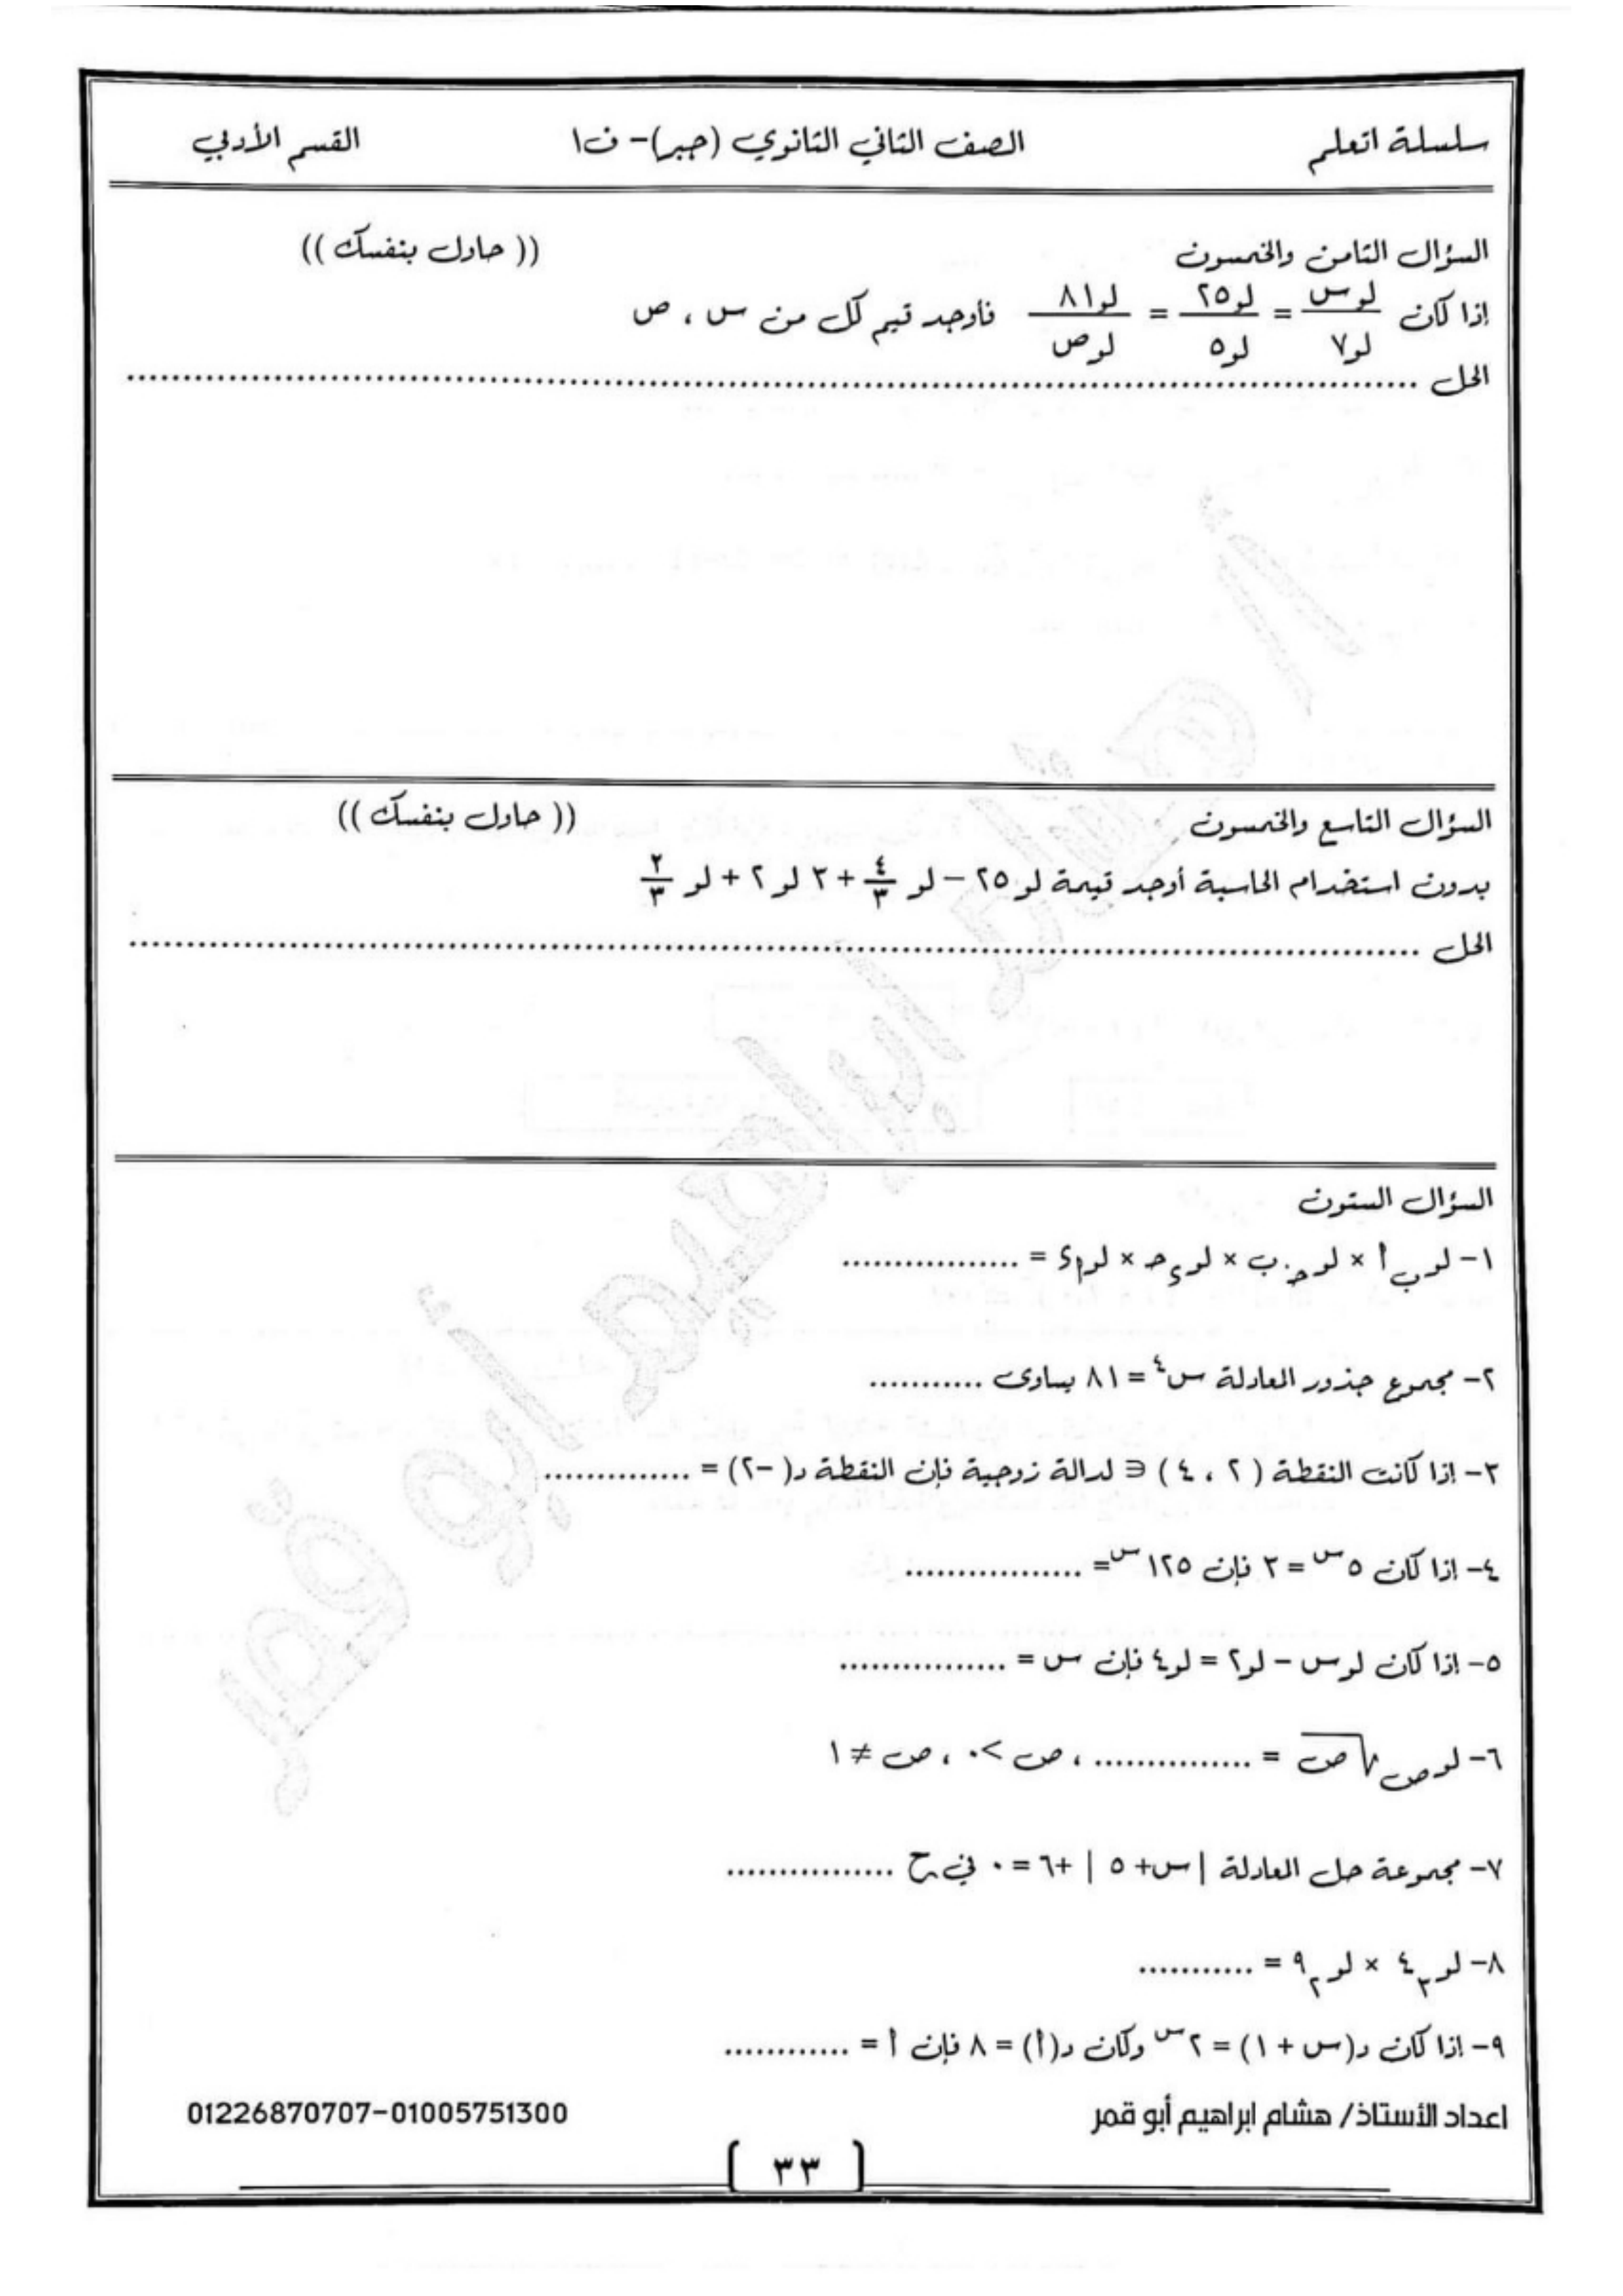 سلسلة اتعلم الصف الثاني الثانوي (جبر)- ف١ القسم الأدبي
السؤال الثامن والخمسون (( حاول بنفسك ))
إذا كان لو س / لو ٧ = لو ٢٥ / لو ٥ = لو ٨١ / لو ص فأوجد قيم كل من س ، ص
الحل ..........
السؤال التاسع والخمسون (( حاول بنفسك ))
بدون استخدام الحاسبة أوجد قيمة لو ٢٥ – لو ٤/٣ + ٣ لو ٢ + لو ٢/٣
الحل ..........
السؤال الستون
١- لو ب أ × لو ج ب × لو د ج × لو أ د = ..........
٢- مجموع جذور المعادلة س⁴ = ٨١ يساوى ...........
٣- إذا كانت النقطة ( ٢ ، ٤ ) ∈ لدالة زوجية فإن النقطة د( -٢) = ..............
٤- إذا كان ٥^س = ٣ فإن ١٢٥^س = ..........
٥- إذا كان لو س – لو ٢ = لو ٤ فإن س = ..........
٦- لو ص √ص = ............... ، ص >٠ ، ص ≠ ١
٧- مجموعة حل المعادلة |س+ ٥ | +٦ = ٠ في ح ..........
٨- لو ٣ ٤ × لو ٢ ٩ = ...........
٩- إذا كان د(س + ١) = ٢^س وكان د(أ) = ٨ فإن أ = ............
اعداد الأستاذ/ هشام ابراهيم أبو قمر 01226870707-01005751300
٣٣
أ/ هشام ابراهيم أبو قمر